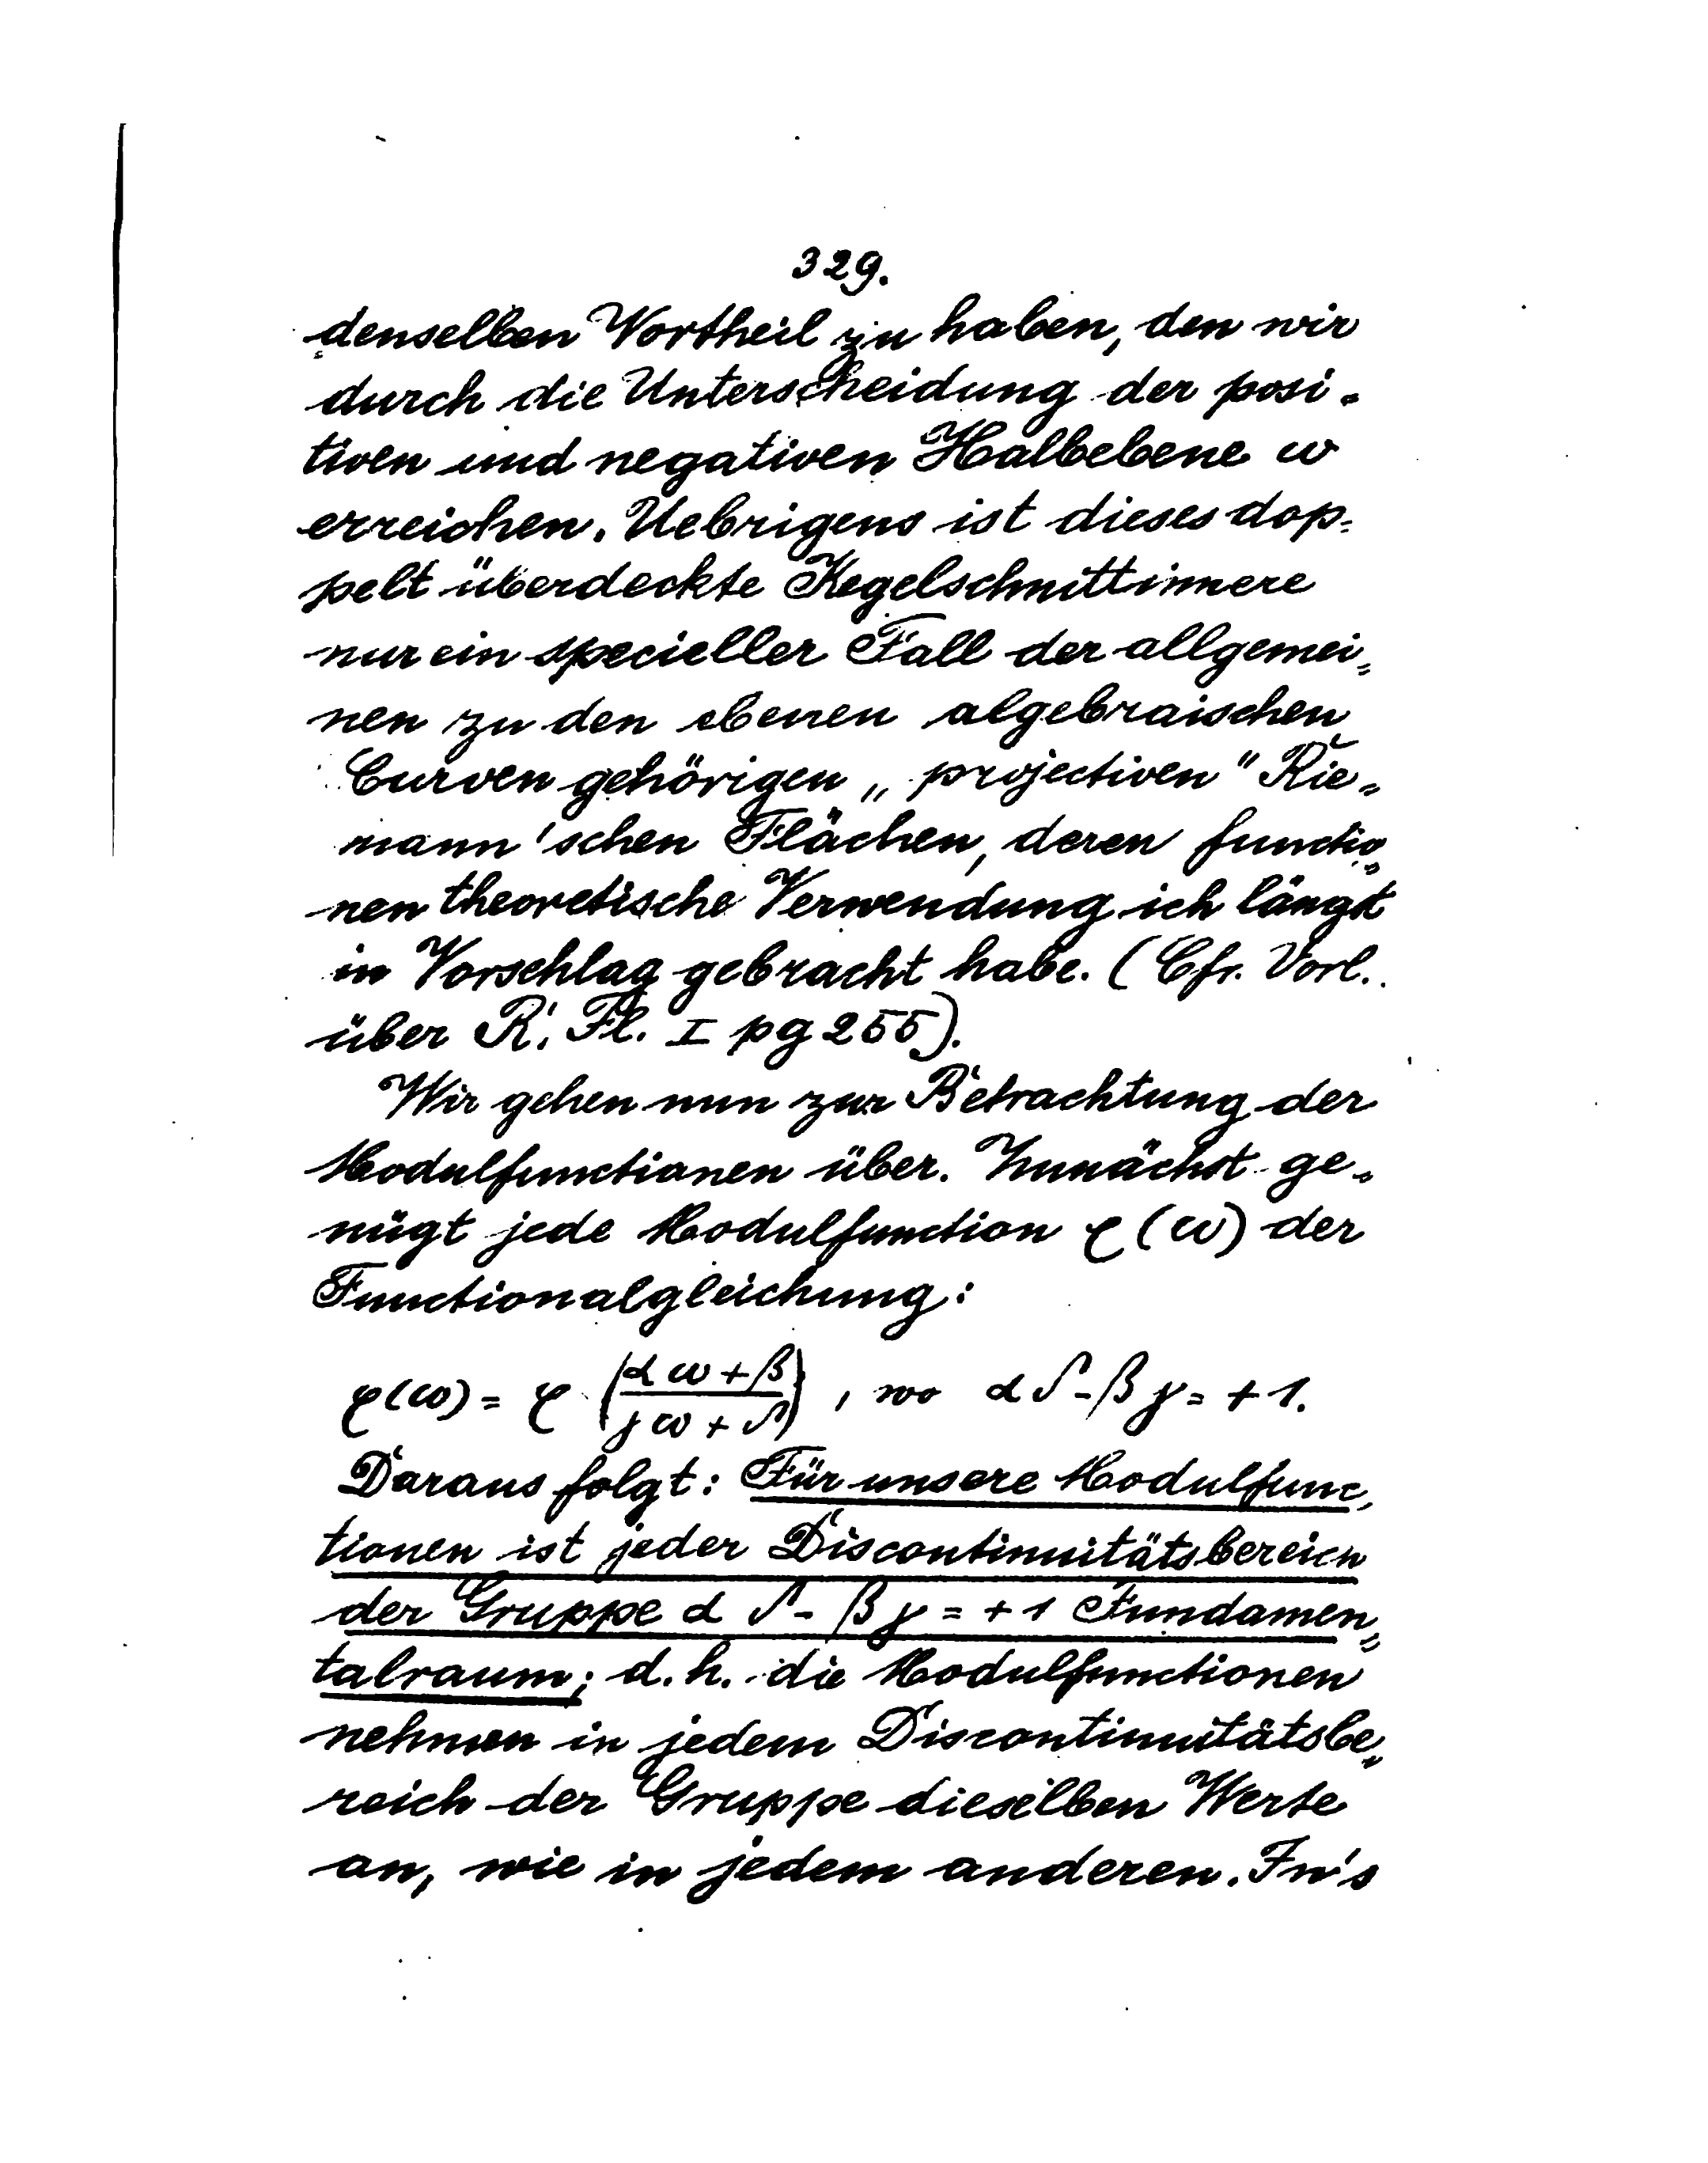 329.
denselben Vortheil zu haben, den wir
durch die Unterscheidung der posi-
tiven und negativen Halbebene ω
erreichen. Uebrigens ist dieses dop-
pelt überdeckte Kegelschnittinnere
nur ein specieller Fall der allgemei-
nen zu den ebenen algebraischen
Curven gehörigen „projectiven" Rie-
mann'schen Flächen, deren functio-
nen theoretische Verwendung ich längst
in Vorschlag gebracht habe. (Cfr. Vorl.
über R. Fl. I pg 255).
Wir gehen nun zur Betrachtung der
Modulfunctionen über. Zunächst ge-
nügt jede Modulfunction φ(ω) der
Functionalgleichung:
φ(ω) = φ((αω+β)/(γω+δ)), wo αδ-βγ = +1.
Daraus folgt: Für unsere Modulfunc-
tionen ist jeder Discontinuitätsbereich
der Gruppe αδ-βγ = +1 Fundamen-
talraum; d.h. die Modulfunctionen
nehmen in jedem Discontinuitätsbe-
reich der Gruppe dieselben Werte
an, wie in jedem anderen. In's